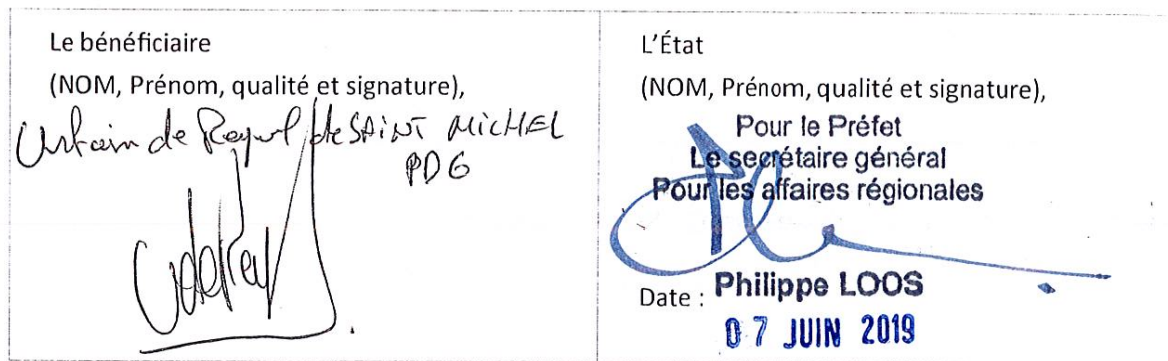 Le bénéficiaire
(NOM, Prénom, qualité et signature),
de de SAINT MICHEL
PDG
L'État
(NOM, Prénom, qualité et signature),
Pour le Préfet
Le secrétaire général
Pour les affaires régionales
Date : Philippe LOOS
07 JUIN 2019